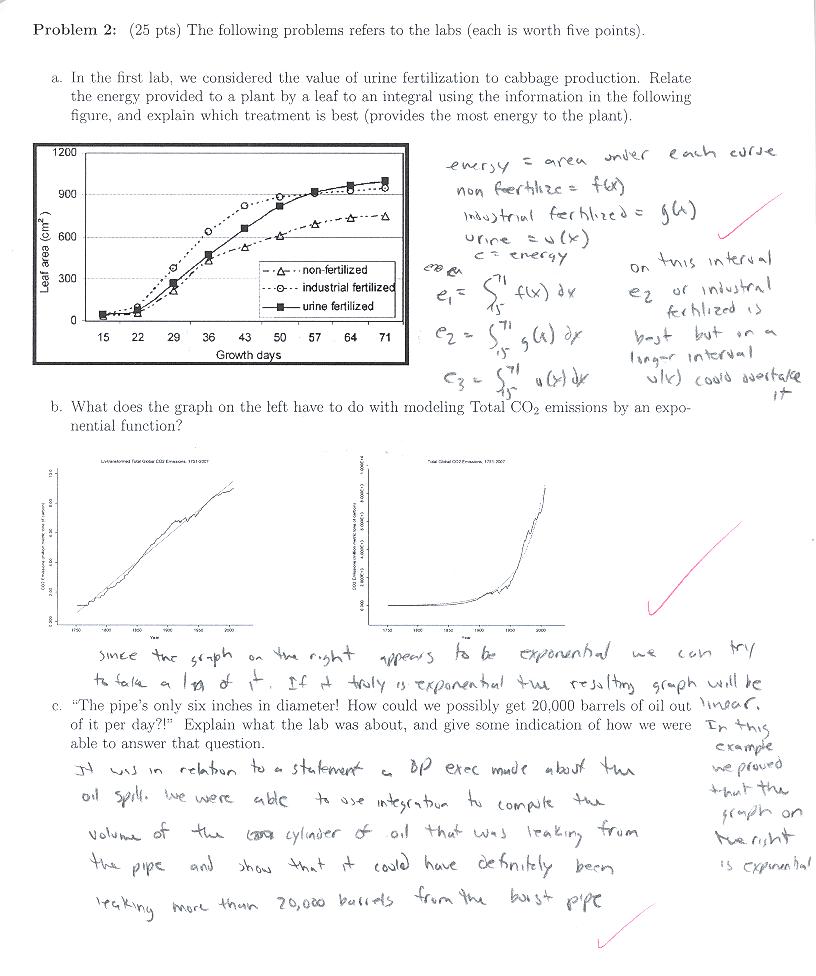 Problem 2: (25 pts) The following problems refers to the labs (each is worth five points).
a. In the first lab, we considered the value of urine fertilization to cabbage production. Relate
the energy provided to a plant by a leaf to an integral using the information in the following
figure, and explain which treatment is best (provides the most energy to the plant).
1200
900
600
300
0
Leaf area (cm²)
15 22 29 36 43 50 57 64 71
Growth days
non-fertilized
industrial fertilized
urine fertilized
energy = area under each curve
non fertilize = f(x)
industrial fertilized = g(x)
urine = u(x)
e = energy
e₁ = ∫₁₅⁷¹ f(x) dx
e₂ = ∫₁₅⁷¹ g(x) dx
e₃ = ∫₁₅⁷¹ u(x) dx
on this interval
e₂ or industral
fertilized is
best but on a
longer interval
u(x) could overtake
it
b. What does the graph on the left have to do with modeling Total CO₂ emissions by an expo-
nential function?
Total Global CO2 Emissions, 1751-2007
1750 1800 1850 1900 1950 2000
Year
Total Global CO2 Emissions, 1751-2007
1750 1800 1850 1900 1950 2000
Year
since the graph on the right appears to be exponential we can try
to take a ln of it. If it truly is exponential the resulting graph will be
linear.
In this
example
we proved
that the
graph on
the right
is exponential
c. “The pipe's only six inches in diameter! How could we possibly get 20,000 barrels of oil out
of it per day?!” Explain what the lab was about, and give some indication of how we were
able to answer that question.
It was in relation to a statement a BP exec made about the
oil spill. We were able to use integration to compute the
volume of the cylinder of oil that was leaking from
the pipe and show that it could have definitely been
leaking more than 20,000 barrels from the burst pipe